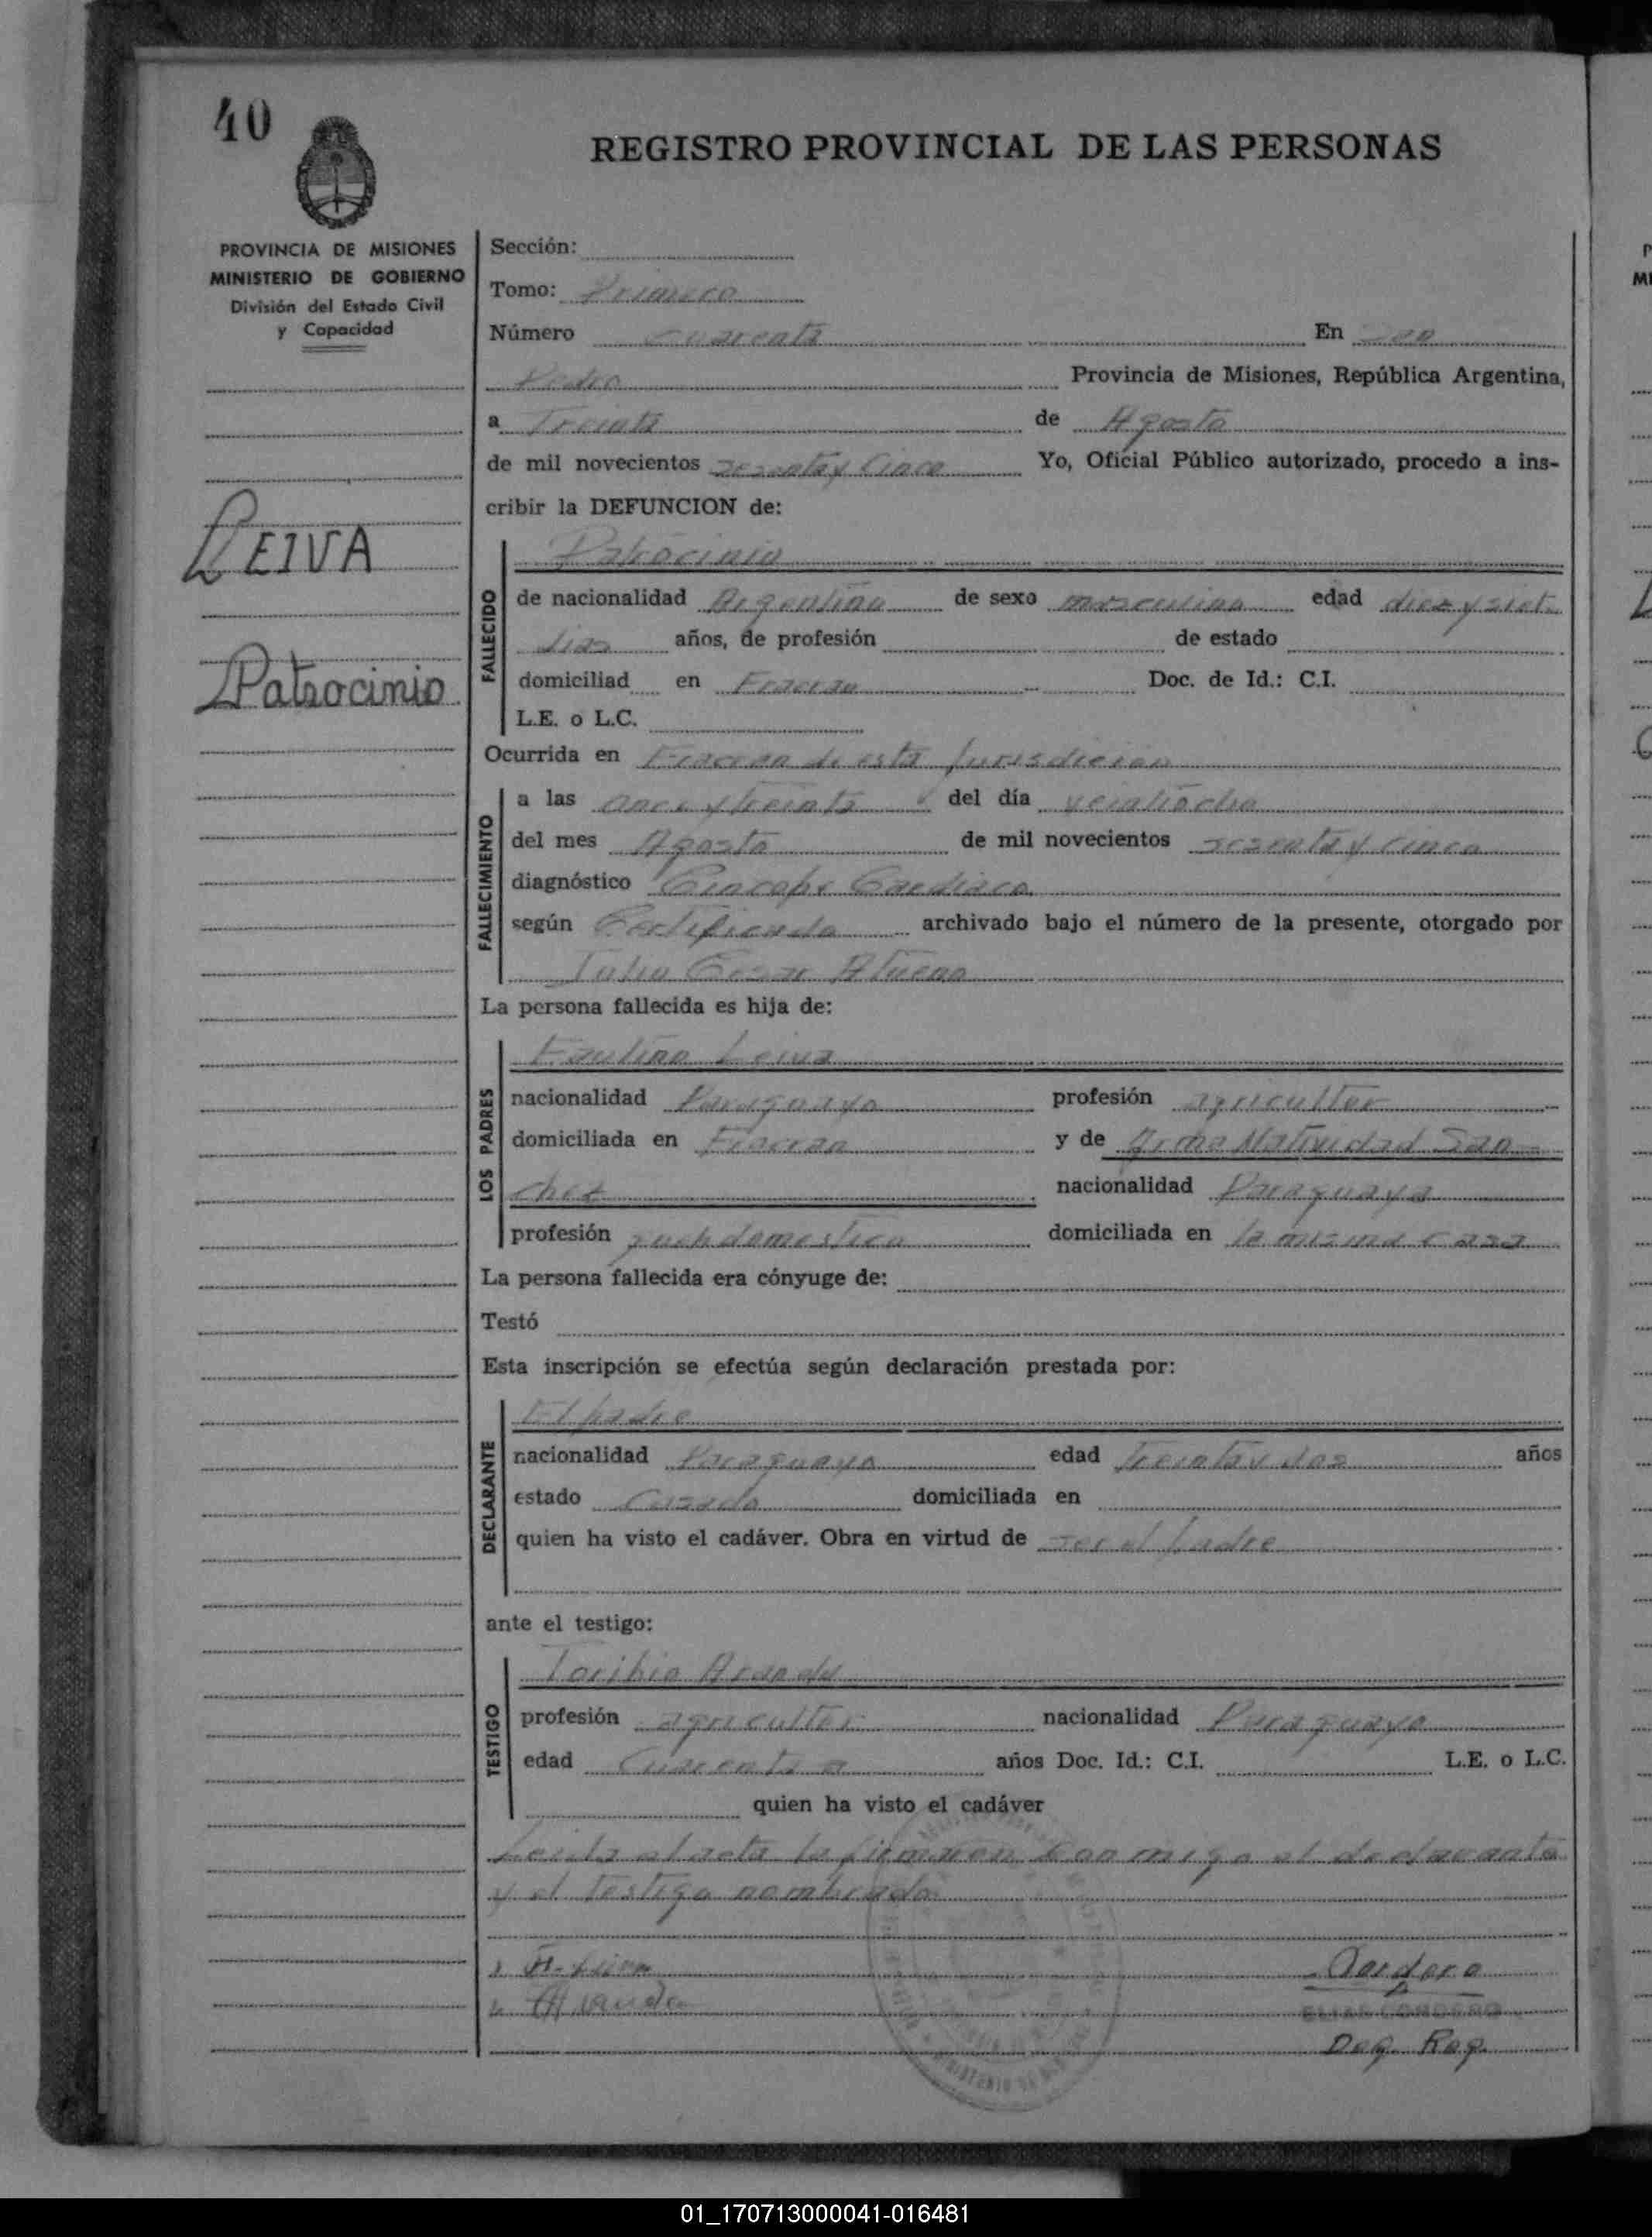 40
REGISTRO PROVINCIAL DE LAS PERSONAS
PROVINCIA DE MISIONES
MINISTERIO DE GOBIERNO
División del Estado Civil
y Capacidad
LEIVA
Patrocinio
Sección:
Tomo: Primero
Número cuarenta En San
Pedro Provincia de Misiones, República Argentina,
a Treinta de Agosto
de mil novecientos sesenta y Cinco Yo, Oficial Público autorizado, procedo a ins-
cribir la DEFUNCION de:
Patrocinio
FALLECIDO
de nacionalidad Argentina de sexo masculino edad diez y siete
dias años, de profesión de estado
domiciliad en Fracran Doc. de Id.: C.I.
L.E. o L.C.
Ocurrida en Fracran de esta Jurisdicion
FALLECIMIENTO
a las once y treinta del día veintiocho
del mes Agosto de mil novecientos sesenta y cinco
diagnóstico Cardiaco
según Certificado archivado bajo el número de la presente, otorgado por
Julio Cesar
La persona fallecida es hija de:
LOS PADRES
Faulino Leiva
nacionalidad Paraguayo profesión agricultor
domiciliada en Fracran y de Irma Natividad San-
chez nacionalidad Paraguaya
profesión domestico domiciliada en la misma casa
La persona fallecida era cónyuge de:
Testó
Esta inscripción se efectúa según declaración prestada por:
DECLARANTE
El padre
nacionalidad Paraguayo edad treinta y dos años
estado Casado domiciliada en
quien ha visto el cadáver. Obra en virtud de ser el padre
ante el testigo:
TESTIGO
Toribio Aranda
profesión agricultor nacionalidad Paraguayo
edad Cuarenta años Doc. Id.: C.I. L.E. o L.C.
quien ha visto el cadáver
Leida el acta la firmaron conmigo el declarante
y el testigo nombrado.
F. Leiva
Cordero
ELIAS CORDERO
Deg. Reg.
01_170713000041-016481